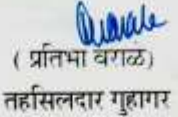 ( प्रतिभा वराळे)
तहसिलदार गुहागर